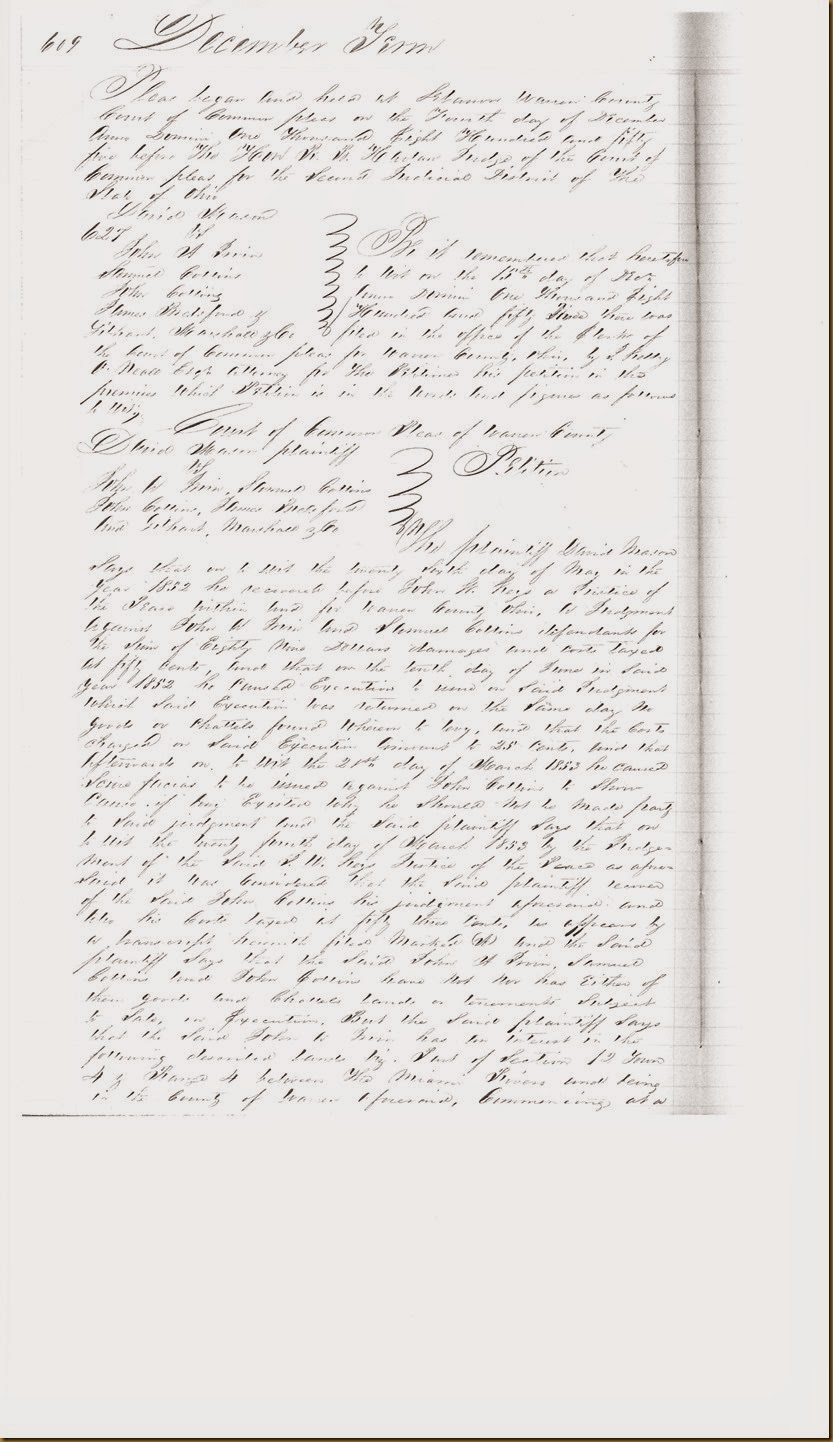 609 December Term
Pleas began and held at Lebanon Warren County
Court of Common pleas on the Fourth day of December
Anno Domini One Thousand Eight Hundred and fifty
five before The Hon Judge of the Court of
Common pleas for the Second Judicial District of The
State of Ohio
David Mason
627 vs
John W Irvin
Samuel Collins
John Collins
James Bedsford &
Gilhart, Marshall & Co
Be it remembered that heretofore
to wit on the day of
Anno Domini One Thousand Eight
Hundred and fifty three there was
filed in the office of the Clerk of
the Court of Common pleas for Warren County, Ohio, by J. Kelly
O. Neall Esqr Attorney for The Petitioner his petition in the
premises which Petition is in the words and figures as follows
to wit,
Court of Common Pleas of Warren County
David Mason plaintiff
vs
John W Irvin, Samuel Collins
John Collins, James Bedsford
and Gilhart, Marshall & Co
Petition
The plaintiff David Mason
Says that on to wit the twenty sixth day of May in the
year 1852 he recovered before John W. Keys a Justice of
the Peace within and for Warren County Ohio, a Judgment
against John W Irvin and Samuel Collins defendants for
the Sum of Eighty Nine Dollars damages and costs taxed
at fifty cents, and that on the tenth day of June in said
year 1852 he caused Execution to issue on Said Judgment
which Said Execution was returned on the Same day No
goods or chattels found whereon to levy, and that the Costs
charged on Said Execution amount to 25 Cents, and that
Afterwards on, to wit the 21st day of March 1853 he caused
Scire facias to be issued against John Collins to Show
Cause if any Existed why he Should Not be made party
to said judgment and the Said plaintiff Says that on
to wit the twenty fourth day of March 1853 by the Judge-
ment of the Said J. W. Keys Justice of the Peace as afore-
Said it was Considered that the Said plaintiff recover
of the Said John Collins his judgment aforesaid and
also his Costs taxed at fifty three Cents, as appears by
a transcript herewith filed Marked (A) and the Said
plaintiff Says that the Said John W Irvin, Samuel
Collins and John Collins have Not Nor has Either of
them goods and Chattels lands or tenements Subject
to Sale, on Execution, But the Said plaintiff Says
that the Said John W Irvin has an interest in the
following described lands viz. Part of Section 12 Town
4 & Range 4 between The Miami Rivers and being
in the County of Warren Aforesaid, Commencing at a